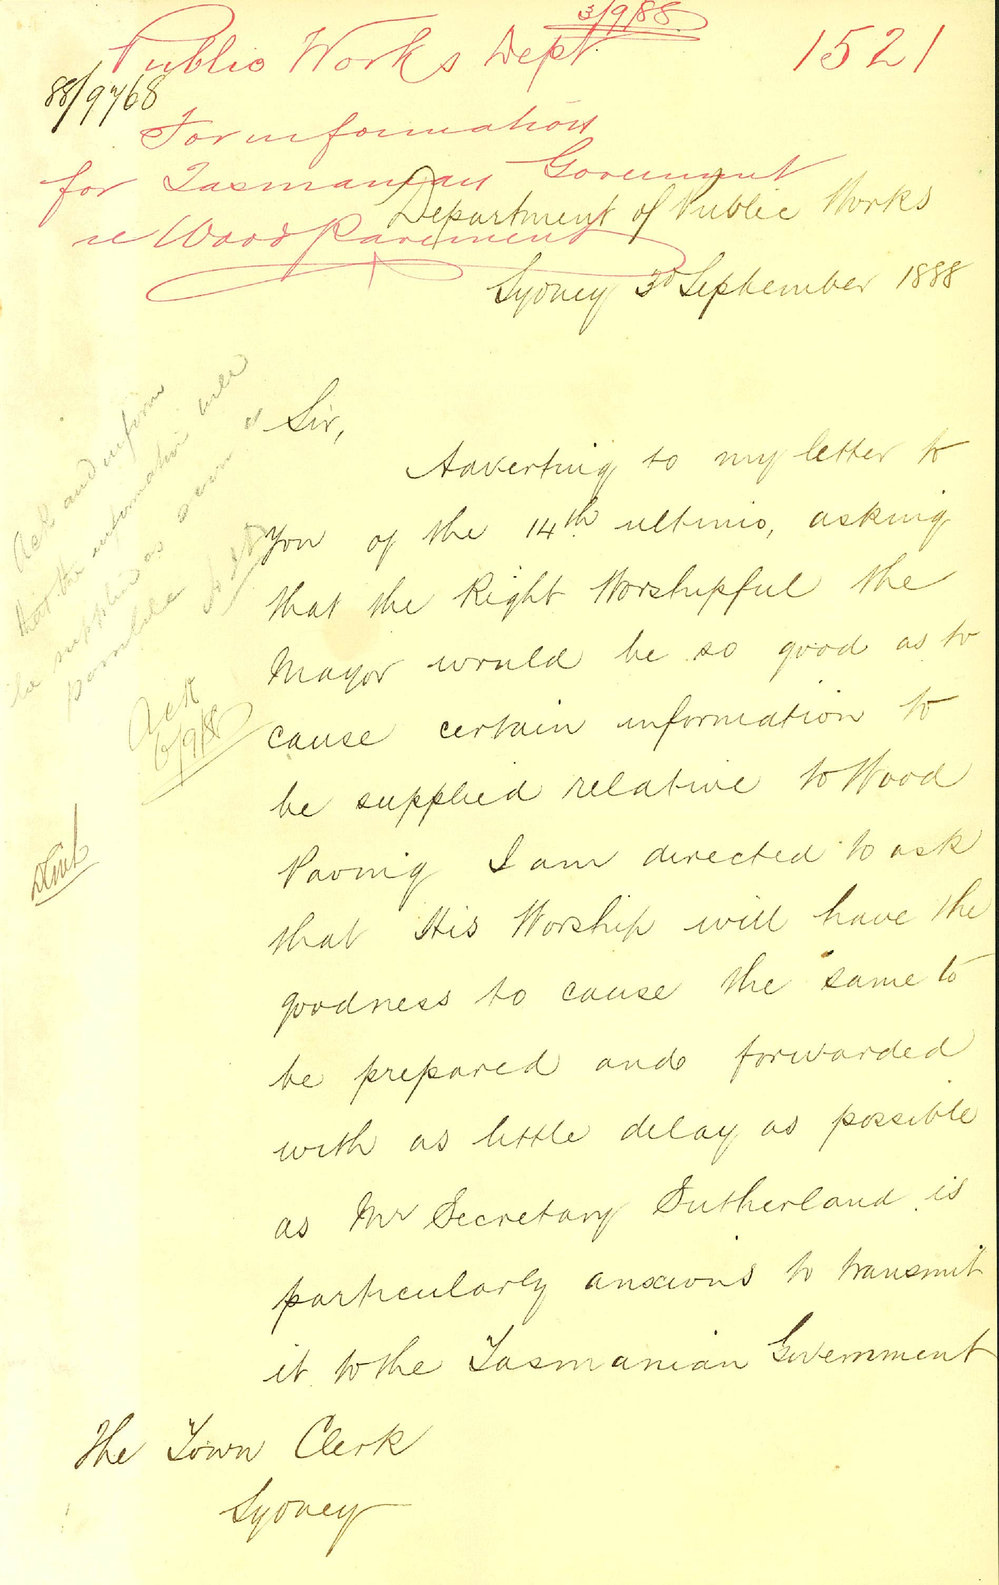 3/9/88
Public Works Dept
1521
88/9768
For information
for Tasmanian Government
re Wood Pavement
Department of Public Works
Sydney 3d September 1888
Ack and inform
that the information will
be supplied as soon as
possible
Ack
6/9/88
Sir,
Adverting to my letter to
you of the 14th ultimo, asking
that the Right Worshipful the
Mayor would be so good as to
cause certain information to
be supplied relative to Wood
Paving I am directed to ask
that His Worship will have the
goodness to cause the same to
be prepared and forwarded
with as little delay as possible
as Mr Secretary Sutherland is
particularly anxious to transmit
it to the Tasmanian Government
The Town Clerk
Sydney